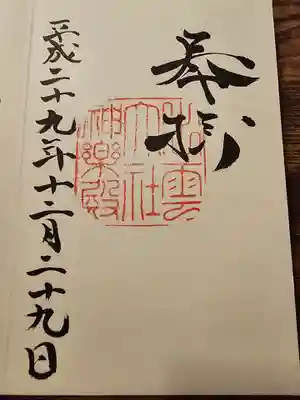 奉拝
出雲
大社
神樂殿
平成二十九年十二月二十九日